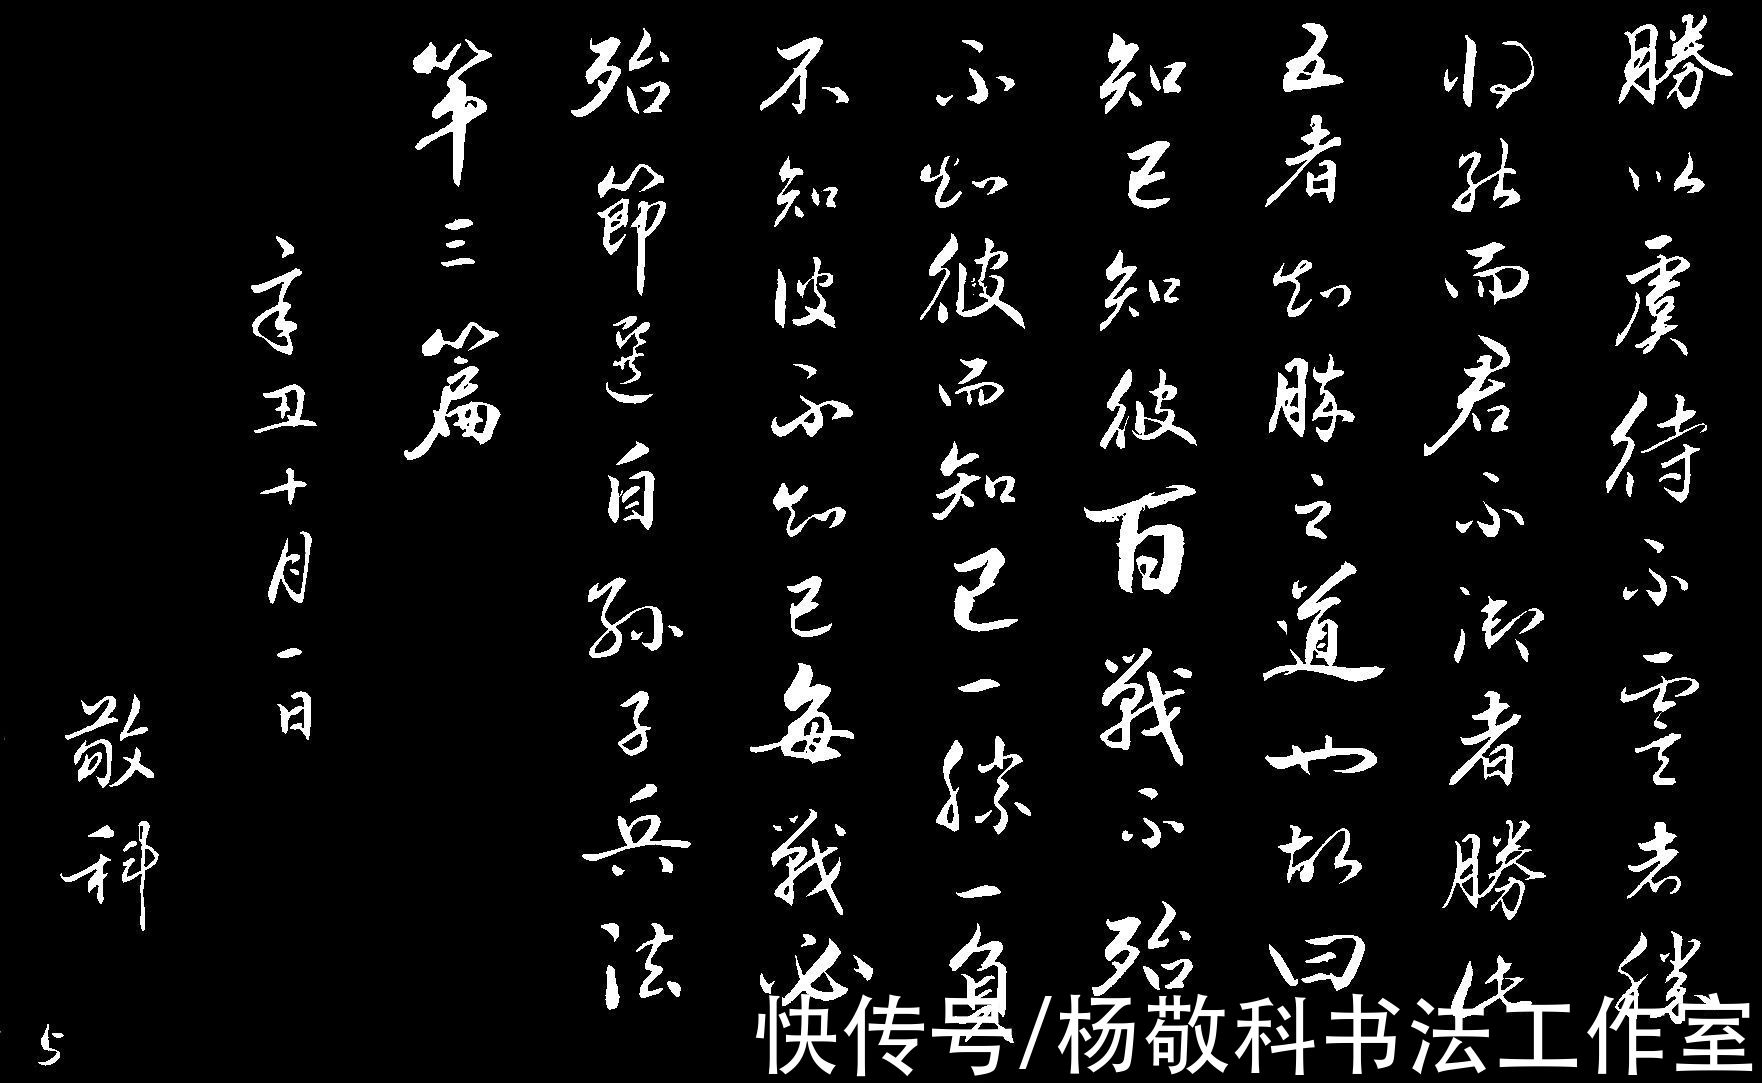 勝以虞待不虞者勝
将能而君不御者勝此
五者知勝之道也故曰
知己知彼百戰不殆
不知彼而知己一勝一負
不知彼不知己每戰必
殆節選自孫子兵法
第三篇
辛丑十月一日
敬科
5
快传号/杨敬科书法工作室